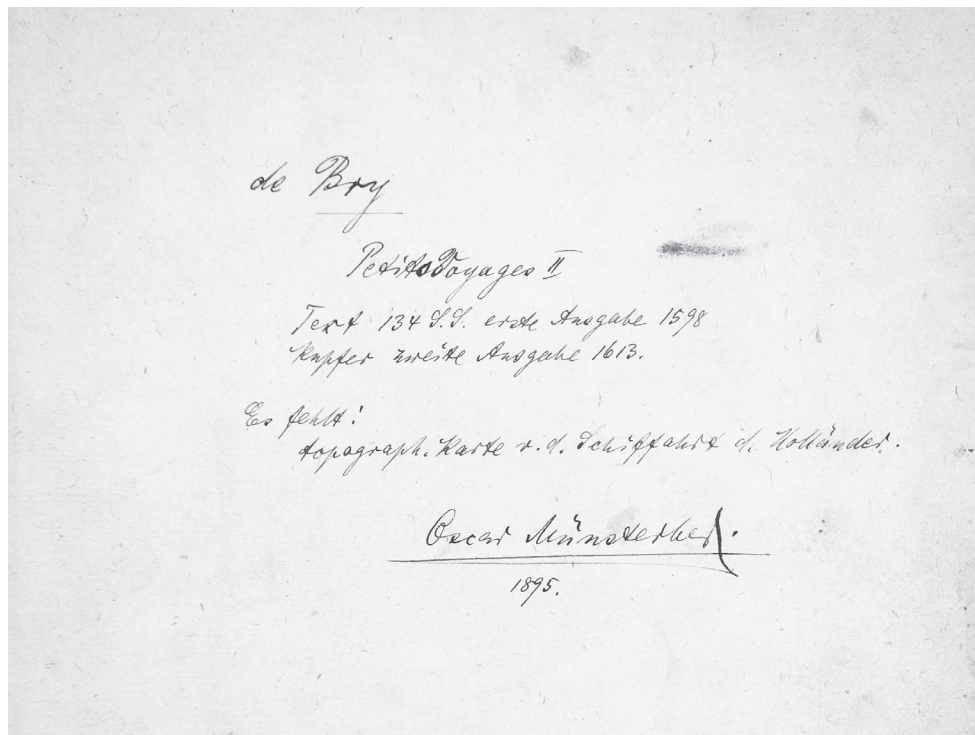 de Bry
Petits Voyages II
Text 134 S.S. erste Ausgabe 1598
Kupfer zweite Ausgabe 1613.
Es fehlt:
topograph. Karte v. d. Schiffahrt d. Holländer.
Oscar Münsterberg.
1895.